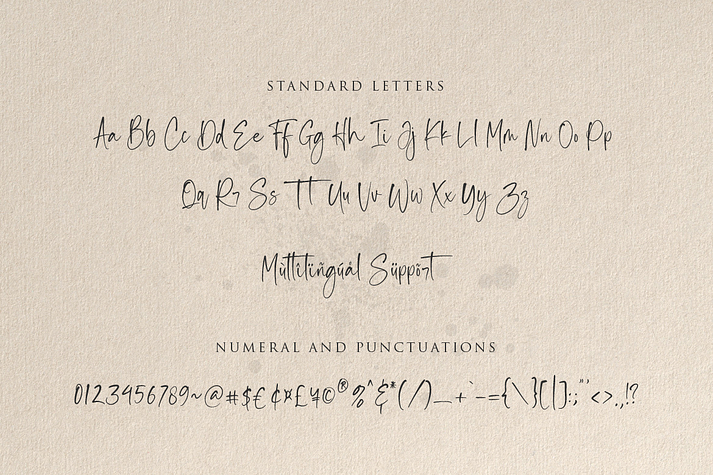 STANDARD LETTERS
Aa Bb Cc Dd Ee Ff Gg Hh Ii Jj Kk Ll Mm Nn Oo Pp
Qq Rr Ss Tt Uu Vv Ww Xx Yy Zz
Mùltîlïñgúål Süppõrt
NUMERAL AND PUNCTUATIONS
0123456789~@#$€¢¤£¥©®%^&*(/)_+`-={\}[|]:;"'<>.,!?